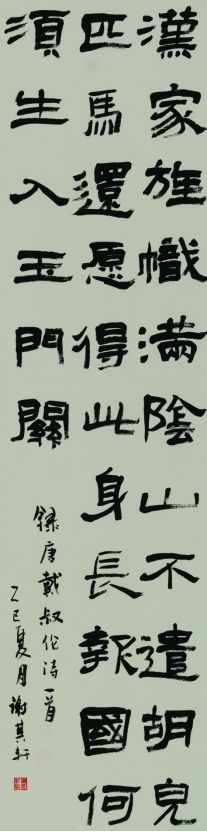 漢家旌幟滿陰山不遣胡兒
匹馬還愿得此身長報國何
須生入玉門關
錄唐戴叔伦诗一首
乙巳夏月谢其轩